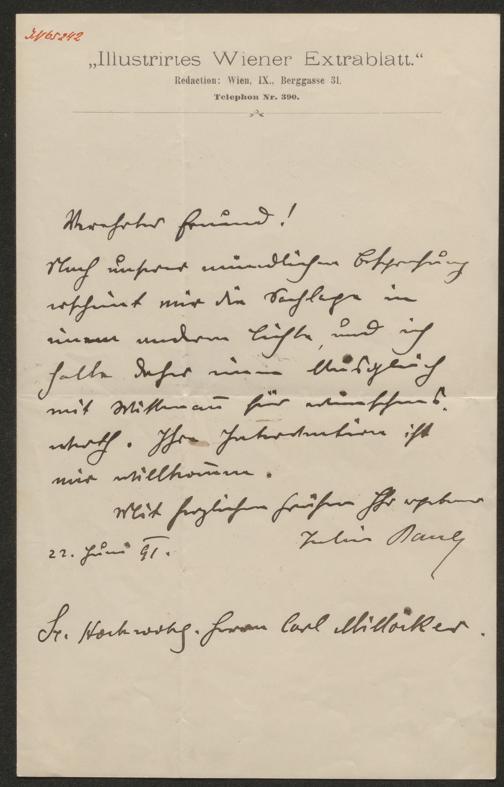 „Illustrirtes Wiener Extrablatt.“
Redaction: Wien, IX., Berggasse 31.
Telephon Nr. 390.
Verehrter Freund!
Nach unserer mündlichen Besprechung
erscheint mir die Sachlage in
einem anderen Lichte, und ich
halte daher einen Ausgleich
mit Wittmann für wünschens-
werth. Ihre Intervention ist
mir willkommen.
Mit herzlichen Grüßen Ihr ergebener
22. Juni 91. Julius Bauer
Sr. Hochwohlg. Herrn Carl Millöcker.